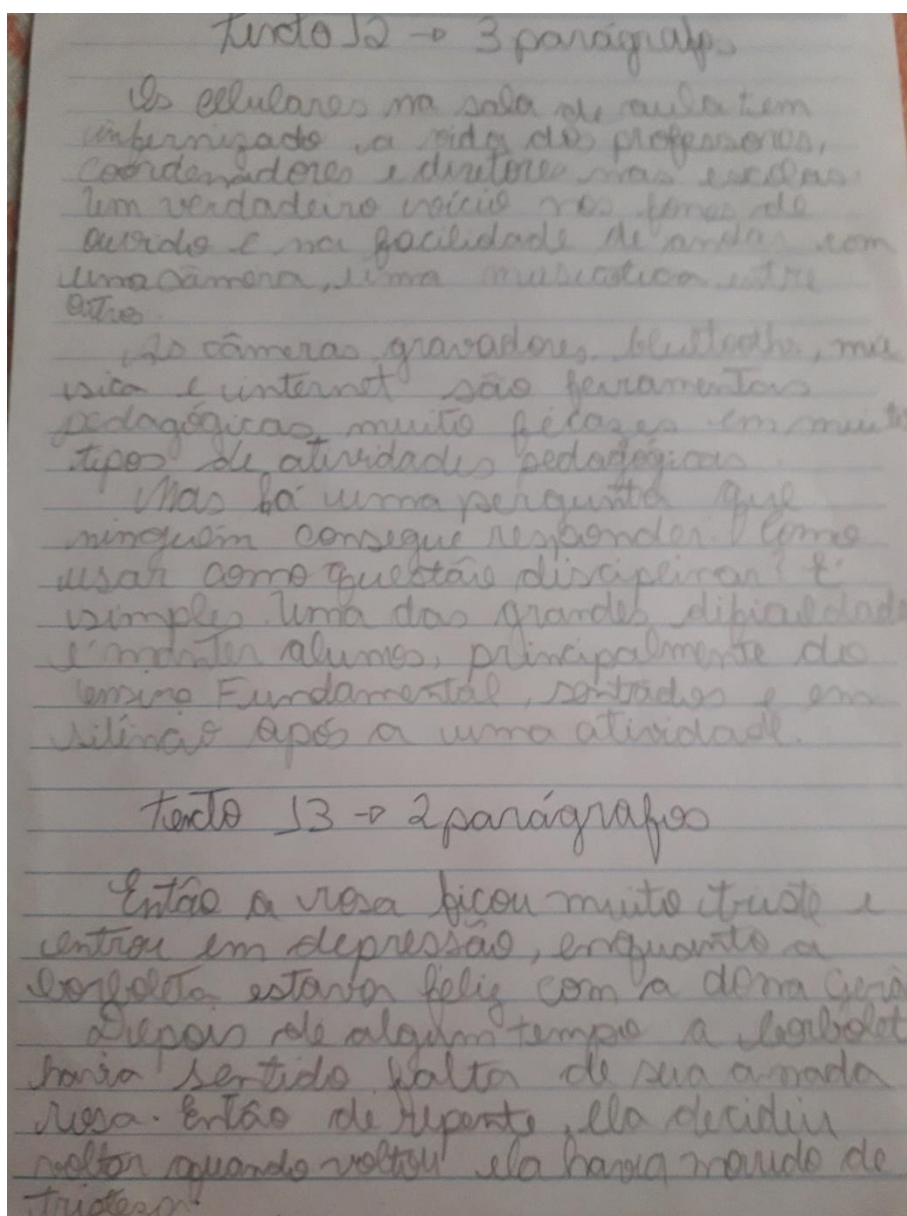 texto 12 → 3 parágrafos
Os celulares na sala de aula tem
infernizado a vida dos professores,
coordenadores e diretores nas escolas.
Um verdadeiro vício nos fones de
ouvido e na facilidade de andar com
uma câmera, uma entre
outros.
As câmeras, gravadores, mú
sica e internet são ferramentas
pedagógicas muito ficazes em muitos
tipos de atividades pedagógicas.
Mas há uma pergunta que
ninguém consegue responder. Como
usar como questão disciplinar? É
simples. Uma das grandes dificuldade
é manter alunos, principalmente do
ensino Fundamental, sentados e em
silêncio após a uma atividade.
texto 13 → 2 parágrafos
Então a rosa ficou muito triste e
entrou em depressão, enquanto a
borboleta estava feliz com a dona
Depois de algum tempo a borbolet
havia sentido falta de sua amada
rosa. Então de repente, ela decidiu
voltar quando voltou ela havia de
tristeza.